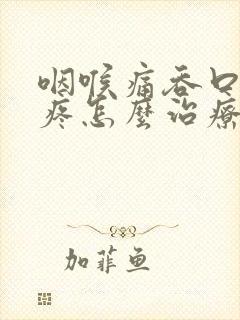 咽喉痛吞口
疼怎麼治療
加菲鱼